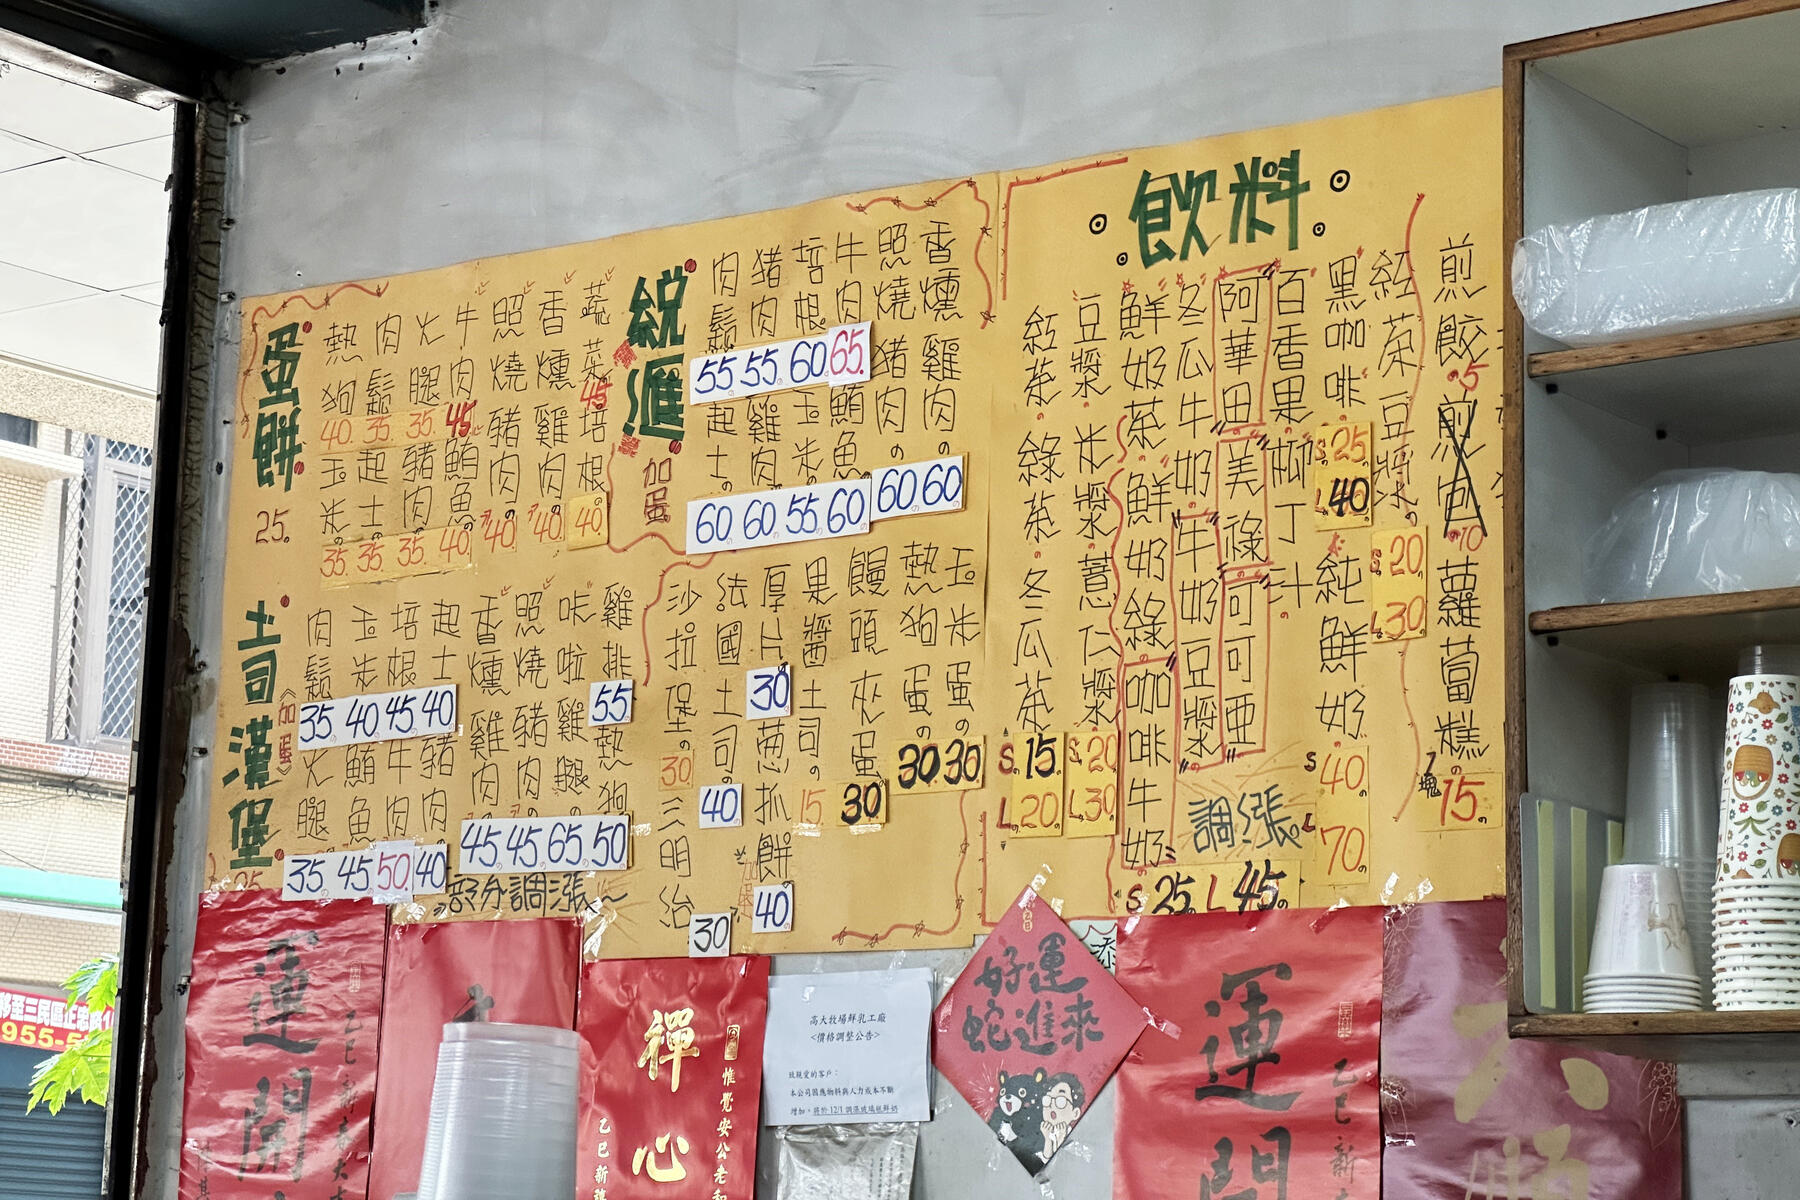 蛋餅
25.
熱狗 40.
肉鬆 35.
火腿 35.
牛肉 45
玉米 35.
起士 35.
豬肉 35.
鮪魚 40.
照燒豬肉 40.
香燻雞肉 40.
蔬菜 45
培根 40.
銳滙
加蛋
肉鬆 55.
豬肉 55.
培根 60.
牛肉 65.
起士 60.
雞肉 60.
玉米 55.
鮪魚 60.
照燒豬肉 60.
香燻雞肉 60.
土司漢堡
《加蛋》
25
肉鬆 35.
玉米 40.
培根 45.
起士 40
火腿 35.
鮪魚 45.
牛肉 50.
豬肉 40.
香燻雞肉 45.
照燒豬肉 45.
咔啦雞腿 65.
雞排 55
熱狗 50.
部分調漲～
沙拉堡 30
三明治 30
法國土司 40
厚片 30
蔥抓餅 40
果醬土司 15
饅頭夾蛋 30
熱狗蛋 30
玉米蛋 30
飲料
紅茶.綠茶.冬瓜茶 S.15 L.20
豆漿.米漿.薏仁漿 S.20 L.30
鮮奶茶.鮮奶綠
咖啡牛奶
冬瓜牛奶
牛奶豆漿
阿華田
美祿
可可亞
調漲
S 25. L 45.
百香果.柳丁汁.
黑咖啡 S.25 L.40
純鮮奶 S 40. L 70.
紅茶豆漿 S.20 L.30
煎餃 5
煎肉 10
蘿蔔糕 1塊 15.
運開
禪心
惟覺安公老和
乙巳新
高大牧場鮮乳工廠
<價格調整公告>
致親愛的客戶：
本公司因應物料與人力成本不斷
增加，將於12/1調漲玻璃瓶鮮奶
好運
蛇進來
運開
乙巳新
移至三民區正忠路1
955-5